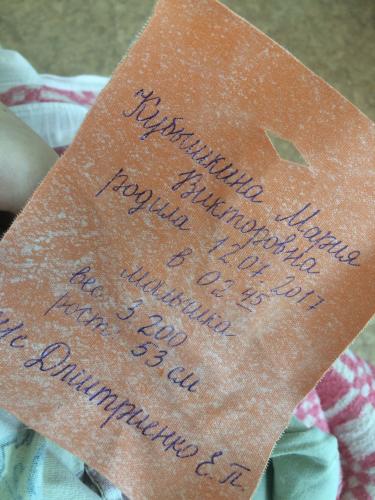 Кубышкина Мария
Викторовна
родила 12 07 2017
в 02 45
малышка
вес 3 200
рост 53 см
Дмитриенко Е.П.